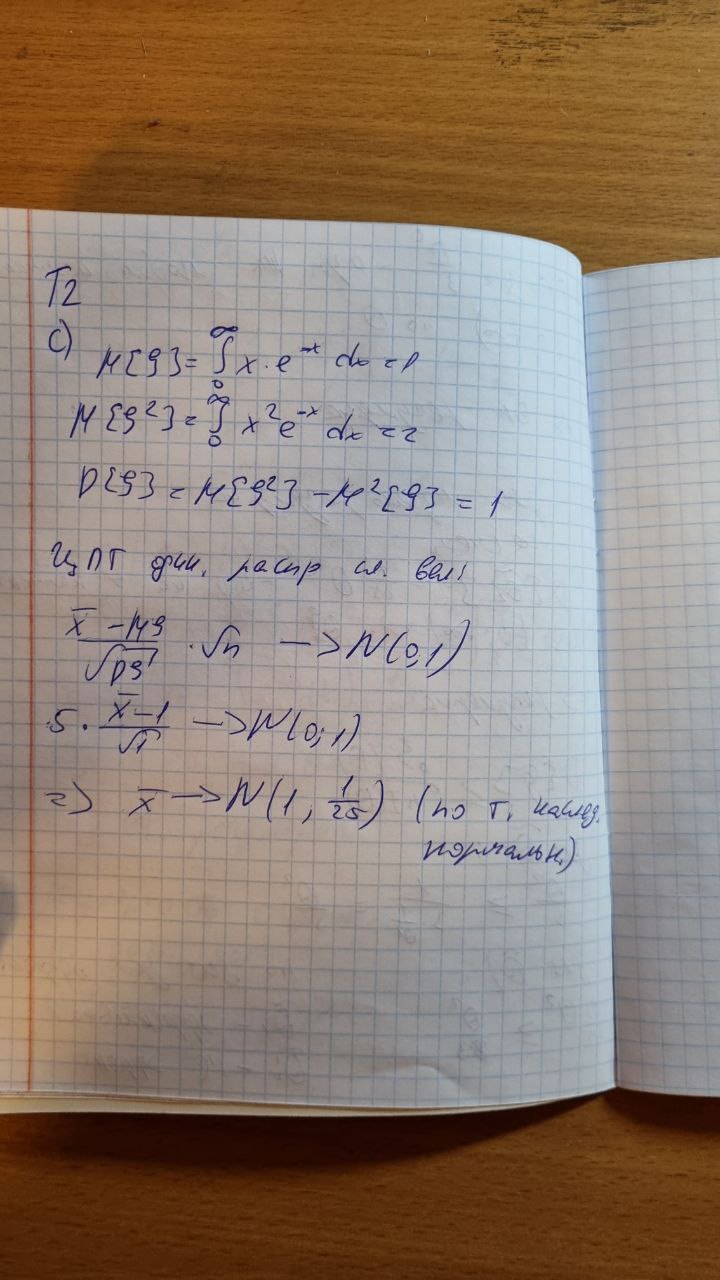 T2
c) M{ξ} = ∫₀^∞ x · e^{-x} dx = 1
M{ξ²} = ∫₀^∞ x² e^{-x} dx = 2
D{ξ} = M{ξ²} - M²{ξ} = 1
ЦПТ один. распр сл. вел:
(x̄ - Mξ)/√Dξ · √n —> N(0,1)
5 · (x̄ - 1)/√1 —> N(0,1)
=> x̄ —> N(1, 1/25) (по т. наслед.
нормальн.)